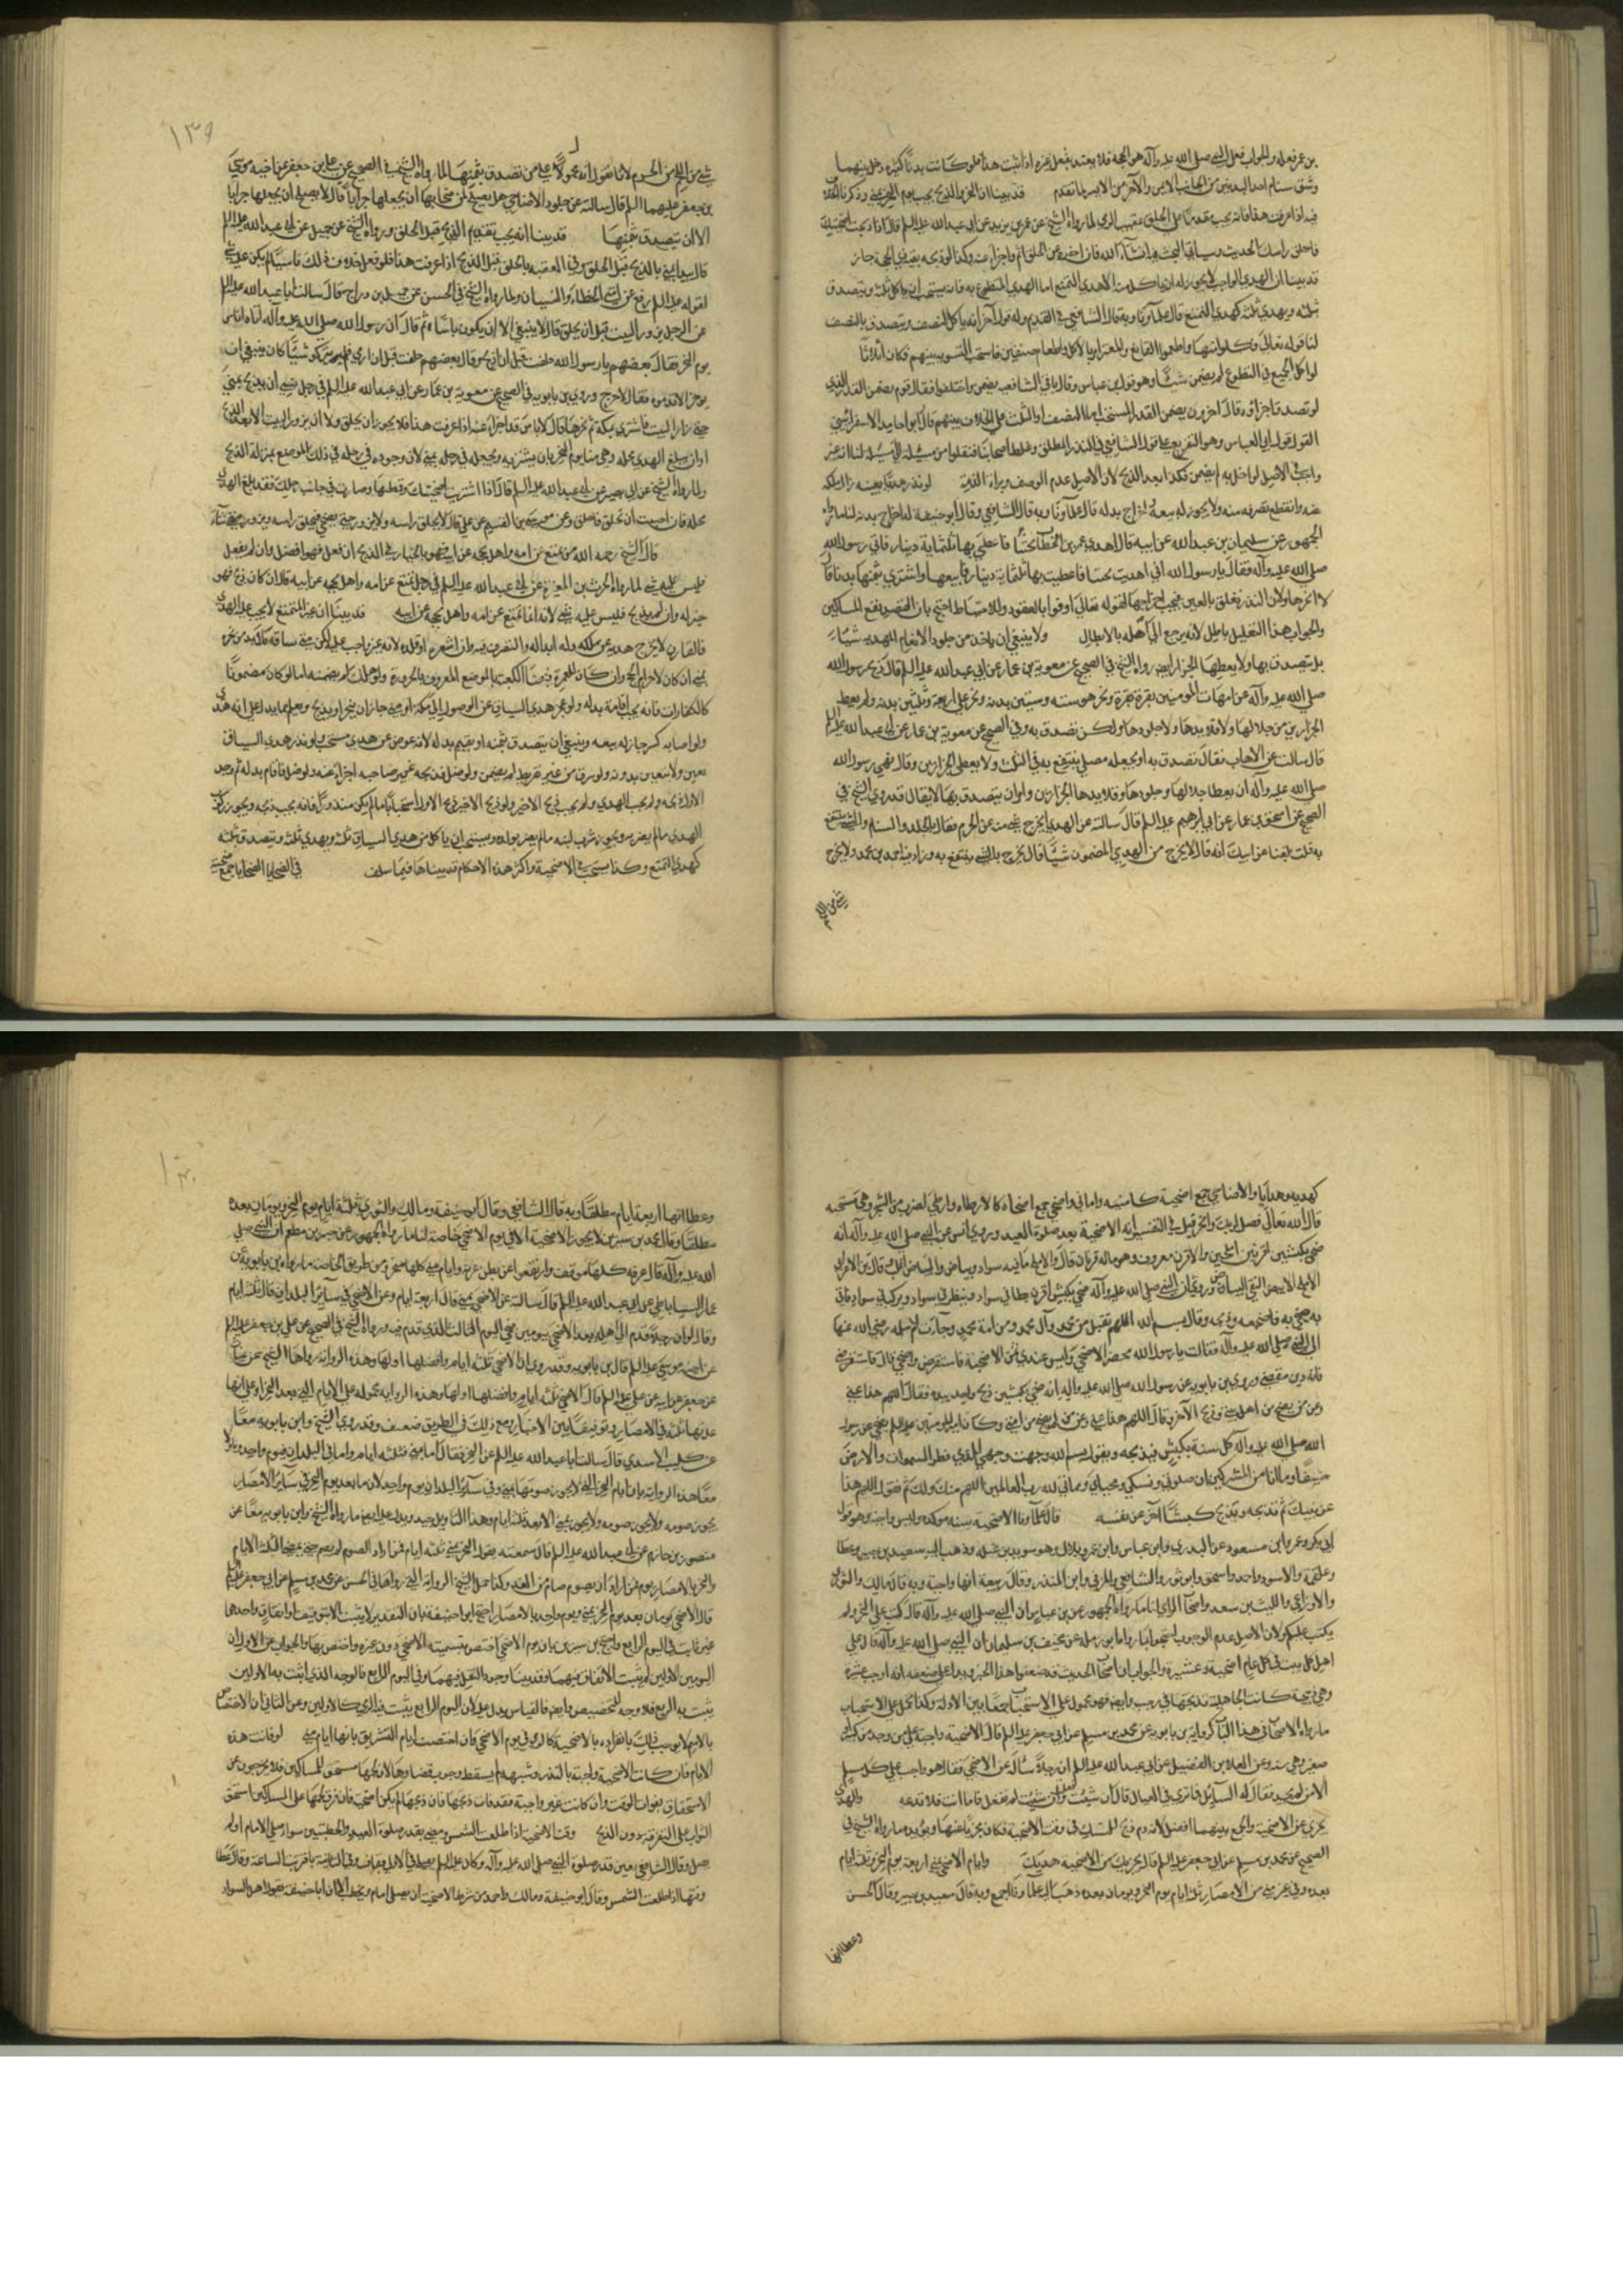 بن عمر فعله والجواب فعل النبي صلى الله عليه وآله هو الحجة فلا يعتد بفعل غيره اذا ثبت هذا فلو كانت بدنا كثيرة دخل بينهما
وشق سنام احد البدنتين من الجانب الايمن والآخر من الايسر لما تقدم قد بينا ان النحر والذبح يجب يوم النحر بمنى وذكرنا
فيه اذا عرفت هذا فانه يجب مقدما على الحلق عقيب الرمي لما رواه الشيخ عن عمر بن يزيد عن ابي عبدالله عليه السلم قال اذا ذبحت اضحيتك
فاحلق راسك الحديث وسياتي البحث فيه انشاء الله فان اخره عن الحلق اثم واجزا وكذا لو ذبحه بقية ذي الحجة جاز
قد بينا ان الهدي الواجب لا يجوز له ان ياكل منه الا هدي التمتع اما الهدي المتطوع به فانه يستحب ان ياكل ثلثه ويتصدق
بثلثه ويهدي ثلثه كهدي التمتع قاله علماؤنا وبه قال الشافعي في القديم وله قول آخر انه ياكل النصف ويتصدق بالنصف
لنا قوله تعالى فكلوا منها واطعموا القانع والمعتر امر بالاكل واطعام صنفين فاستحب التسوية بينهم فكان اثلاثا
لو اكل الجميع في التطوع لم يضمن شيئا وهو قول ابن عباس وقال باقي الشافعية يضمن واختلفوا فقال قوم يضمن القدر الذي
لو تصدق به اجزاه وقال آخرون يضمن القدر المستحب اما النصف او الثلث على الخلاف بينهم قال ابو حامد الاسفرائيني
القول قول ابي العباس وهو التفريع على قول الشافعي في النذر المطلق وغلط اصحابنا فنقلوا من مسئلة الى مسئلة لنا انه غير
واجب في الاصل لو اخل به لم يضمن فكذا بعد الذبح لان الاصل عدم الوصف وبراءة الذمة لو نذر هديا بعينه زال ملكه
عنه وانقطع تصرفه منه ولا يجوز له بيعه واخراج بدله قاله علماؤنا وبه قال الشافعي وقال ابو حنيفة له اخراج بدله لنا ما رواه
الجمهور عن سليمان بن عبدالله عن ابيه قال اهدى عمر بن الخطاب بختيا فاعطي بها ثلثماية دينار فاتى رسول الله
صلى الله عليه وآله فقال يا رسول الله اني اهديت بختيا فاعطيت بها ثلثماية دينار فابيعها واشتري بثمنها بدنا قال
لا انحرها ولان النذر تعلق بالعين فيجب اخراجها لقوله تعالى اوفوا بالعقود وللاحتياط احتج بان القصد نفع المساكين
والجواب هذا التعليل باطل لانه يرجع الى اصله بالابطال ولا ينبغي ان ياخذ من جلود الانعام المهدية شيئا
بل يتصدق بها ولا يعطيها الجزار ايضا رواه الشيخ في الصحيح عن معوية بن عمار عن ابي عبدالله عليه السلم قال ذبح رسول الله
صلى الله عليه وآله عن امهات المومنين بقرة بقرة ونحر هو ستة وستين بدنة ونحر علي اربعة وثلثين بدنة ولم يعط
الجزارين من جلالها ولا قلايدها ولا جلودها ولكن تصدق به وفي الصحيح عن معوية بن عمار عن ابي عبدالله عليه السلم
قال سالت عن الاهاب فقال تصدق به او تجعله مصلى ينتفع به في البيت ولا يعطي الجزارين وقال نهى رسول الله
صلى الله عليه وآله ان يعطا جلالها وجلودها وقلايدها الجزارين وامر ان يتصدق بها لا يقال قد روى الشيخ في
الصحيح عن اسحق بن عمار عن ابي ابرهيم عليه السلم قال سالته عن الهدي ايخرج شيء منه عن الحرم فقال بالجلد والسنام والشيء ينتفع
به قلت بلغنا عن ابيك انه قال لا يخرج من الهدي المضمون شيئا قال يخرج بالشيء ينتفع به وزاد فيه احمد بن محمد ولا يخرج
شيء من اللحم
١٣٩
شيء من اللحم من الحرم لانا نقول انه محمول على من تصدق بثمنها لما رواه الشيخ في الصحيح عن علي بن جعفر عن اخيه موسى
بن جعفر عليهما السلم قال سالته عن جلود الاضاحي هل يصلح لمن ضحى بها ان يجعلها جرابا قال لا يصلح ان يجعلها جرابا
الا ان يتصدق بثمنها قد بينا انه يجب تقديم الذبح قبل الحلق ورواه الشيخ عن جميل عن ابي عبدالله عليه السلم
قال تبدا بمنى بالذبح قبل الحلق وفي العقيقة بالحلق قبل الذبح اذا عرفت هذا فلو فعل خلاف ذلك ناسيا لم يكن عليه شيء
لقوله عليه السلم رفع عن امتي الخطاء والنسيان ولما رواه الشيخ في الحسن عن جميل بن دراج قال سالت ابا عبدالله عليه السلم
عن الرجل يزور البيت قبل ان يحلق قال لا ينبغي الا ان يكون ناسيا ثم قال ان رسول الله صلى الله عليه وآله اتاه اناس
يوم النحر فقال بعضهم يا رسول الله حلقت قبل ان اذبح وقال بعضهم حلقت قبل ان ارمي فلم يتركوا شيئا كان ينبغي ان
يوخر الا قدموه فقال لا حرج وروى بن بابويه في الصحيح عن معوية بن عمار عن ابي عبدالله عليه السلم في رجل نسي ان يذبح بمنى
حتى زار البيت فاشترى بمكة ثم نحرها قال لا باس قد اجزا عنه اذا عرفت هذا فلا يجوز ان يحلق ولا ان يزور البيت الا بعد الذبح
او ان يبلغ الهدي محله وهي منى يوم النحر بان يشتريه ويجعله في رحله بمنى لان وجوده في رحله في ذلك الموضع بمنزلة الذبح
ولما رواه الشيخ عن ابي بصير عن ابي عبدالله عليه السلم قال اذا اشتريت اضحيتك وقمطتها وصارت في جانب رحلك فقد بلغ الهدي
محله فان احببت ان تحلق فاحلق وعن موسى بن القسم عن علي قال لا يحلق راسه ولا يزور حتى يضحي فيحلق راسه ويزور متى شاء
قال الشيخ رحمه الله من تمتع عن امه واهل بحجه عن ابيه فهو بالخيار في الذبح ان فعل فهو افضل وان لم يفعل
فليس عليه شيء لما رواه الحرث بن المغيرة عن ابي عبدالله عليه السلم في رجل تمتع عن امه واهل بحجه عن ابيه قال ان كان ذبح فهو
خير له وان لم يذبح فليس عليه شيء لانه انما تمتع عن امه واهل بحجه عن ابيه قد بينا ان غير المتمتع لا يجب عليه الهدي
فالقارن لا يخرج هديه عن ملكه وله ابداله والتصرف فيه وان اشعره او قلده لانه غير واجب عليه لكن متى ساقه فلا بد من نحره
بمنى ان كان لاحرام الحج وان كان للعمرة فبفناء الكعبة بالموضع المعروف بالحزورة ولو هلك لم يضمنه اما لو كان مضمونا
كالكفارات فانه يجب اقامة بدله ولو عجز هدي السياق عن الوصول الى مكة او منى جاز ان ينحر او يذبح ويعلم بما يدل على انه هدي
ولو اصابه كسر جاز له بيعه وينبغي ان يتصدق بثمنه او يقيم بدله لانه عوض عن هدي مستحب ولو نذر هدي السياق
تعين ولا يتعين بدونه ولو سرق من غير تفريط لم يضمن ولو ضل فذبحه غير صاحبه اجزا عنه ولو ضل فاقام بدله ثم وجد
الاول ذبحه ولم يجب الهدي ولم يجب ذبح الاخير ولو ذبح الاخير ذبح الاول استحبابا ما لم يكن منذورا فانه يجب ذبحه ويجوز ركوب
الهدي ما لم يضر به ويجوز شرب لبنه ما لم يضر بولده ويستحب ان ياكل من هدي السياق ثلثه ويهدي ثلثه ويتصدق بثلثه
كهدي التمتع وكذا يستحب في الاضحية واكثر هذه الاحكام قد بيناها فيما سلف في الضحايا الضحايا جمع ضحية
كهدية وهدايا والاضاحي جمع اضحية كامنية واماني واضحى جمع اضحاه كالارطاه وارطى لضرب من الشجر وهي مستحبة
قال الله تعالى فصل لربك وانحر قيل في التفسير انه الاضحية بعد صلوة العيد وروى انس عن النبي صلى الله عليه وآله انه
ضحى بكبشين اقرنين املحين والاقرن معروف وهو ما له قرنان قال والاملح ما فيه سواد وبياض والبياض اغلب وقال ابن الاعرابي
الاملح الابيض النقي البياض وروي ان النبي صلى الله عليه وآله ضحى بكبش اقرن يطا في سواد وينظر في سواد ويبرك في سواد فاتي
به فضحى به فاضجعه وذبحه وقال بسم الله اللهم تقبل من محمد وآل محمد ومن امة محمد وجاءت ام سلمة رضي الله عنها
الى النبي صلى الله عليه وآله فقالت يا رسول الله يحضر الاضحى وليس عندي ثمن الاضحية فاستقرض واضحي قال فاستقرضي
فانه دين مقضي وروى بن بابويه عن رسول الله صلى الله عليه وآله انه ضحى بكبشين ذبح واحدا بيده فقال اللهم هذا عني
وعن من لم يضح من اهل بيتي وذبح الآخر وقال اللهم هذا عني وعن من لم يضح من امتي وكان امير المومنين عليه السلم يضحي عن رسول
الله صلى الله عليه وآله كل سنة بكبش فيذبحه ويقول بسم الله وجهت وجهي للذي فطر السموات والارض
حنيفا وما انا من المشركين ان صلوتي ونسكي ومحياي ومماتي لله رب العالمين اللهم منك ولك ثم يقول اللهم هذا
عن نبيك ثم يذبحه ويذبح كبشا آخر عن نفسه قال علماؤنا الاضحية سنة موكدة وليس واجبة وهو قول
ابي بكر وعمر وابن مسعود عن البدري وابن عباس وابن عمر وبلال وهو سويد بن غفلة وذهب اليه سعيد بن جبير وعطا
وعلقمة والاسود واحمد واسحق وابو ثور والشافعي والمزني وابن المنذر وقال ربيعة انها واجبة وبه قال مالك والثوري
والاوزاعي والليث بن سعد واصحاب الراي لنا ما رواه الجمهور عن بن عباس ان النبي صلى الله عليه وآله قال كتب علي النحر ولم
يكتب عليكم ولان الاصل عدم الوجوب احتجوا بما رواه ابو رملة عن مخنف بن سليمان ان النبي صلى الله عليه وآله قال على
اهل كل بيت في كل عام اضحية وعتيرة والجواب ان اصحاب الحديث قد ضعفوا هذا الخبر ويدل على ضعفه انه اوجب عتيرة
وهي ذبيحة كانت الجاهلية تذبحها في رجب وايضا فهو محمول على الاستحباب جمعا بين الادلة وكذا يحمل على الاستحباب
ما رواه الاصحاب في هذا الباب كرواية بن بابويه عن محمد بن مسلم عن ابي جعفر عليه السلم قال الاضحية واجبة على من وجد من كبير او
صغير وهي سنة وعن العلا بن الفضيل عن ابي عبدالله عليه السلم ان رجلا سأله عن الاضحى فقال هو واجب على كل مسلم
الا من لم يجد فقال له السائل فما ترى في العيال قال ان شئت فعلت وان شئت لم تفعل فاما انت فلا تدعه والهدي
يجزي عن الاضحية والجمع بينهما افضل لانه دم ذبح للنسك في وقت الاضحية فكان مجزيا عنها ويويده ما رواه الشيخ في
الصحيح عن محمد بن مسلم عن ابي جعفر عليه السلم قال يجزيك من الاضحية هديك وايام الاضحى بمنى اربعة يوم النحر وثلثة ايام
بعده وفي غير منى من الامصار ثلثة ايام يوم النحر ويومان بعده ذهب اليه علماؤنا اجمع وبه قال سعيد بن جبير وقال الحسن
وعطا انها
١٤٠
وعطا انها اربعة ايام مطلقا وبه قال الشافعي وقال ابو حنيفة ومالك والثوري ثلثة ايام يوم النحر ويومان بعده
مطلقا وقال محمد بن سيرين لا يجوز الاضحية الا في يوم الاضحى خاصة لنا ما رواه الجمهور عن جبير بن مطعم ان النبي صلى
الله عليه وآله قال عرفة كلها موقف وارتفعوا عن بطن عرنة وايام منى كلها منحر ومن طريق الخاصة ما رواه بن بابويه عن
عمار الساباطي عن ابي عبدالله عليه السلم قال سالته عن الاضحى بمنى قال اربعة ايام وعن الاضحى في سائر البلدان قال ثلثة ايام
وقال لو ان رجلا قدم الى اهله بعد الاضحى بيومين ضحى اليوم الثالث الذي قدم فيه ورواه الشيخ في الصحيح عن علي بن جعفر عليه السلم
عن اخيه موسى عليه السلم قال بن بابويه وقد روي ان الاضحى ثلثة ايام وافضلها اولها وهذه الرواية رواها الشيخ عن غياث
عن جعفر عن ابيه عن علي عليه السلم قال الاضحى ثلثة ايام وافضلها اولها وهذه الرواية محمولة على الايام التي بعد النحر او على انها
ثلثة في الامصار وتوفيقا بين الاخبار ومع ذلك في الطريق ضعف وقد روى الشيخ وابن بابويه معا
عن كليب الاسدي قال سالت ابا عبدالله عليه السلم عن النحر فقال اما بمنى فثلثة ايام واما في البلدان فيوم واحد
هذه الرواية بان ايام النحر التي لا يجوز صومها بمنى وفي سائر البلدان يوم واحد لان ما بعد يوم النحر في سائر الامصار
يجوز صومه ولا يجوز صومه بمنى الا بعد ثلثة ايام وهذا التاويل جيد ويدل عليه ايضا ما رواه الشيخ وابن بابويه معا عن
منصور بن حازم عن ابي عبدالله عليه السلم قال سمعته يقول النحر بمنى ثلثة ايام فمن اراد الصوم لم يصم حتى يمضي الثلثة الايام
والنحر بالامصار يوم فمن اراد ان يصوم صام من الغد وكذا حمل الشيخ الرواية التي رواها في الحسن عن محمد بن مسلم عن ابي جعفر عليه السلم
قال الاضحى يومان بعد يوم النحر بمنى ويوم واحد بالامصار احتج ابو حنيفة بان التقدير لا يثبت الا بتوقيف او اتفاق واحدها
غير ثابت في اليوم الرابع واحتج بن سيرين بان يوم الاضحى اختص بتسميته الاضحى دون غيره واختص بها والجواب عن الاول ان
اليومين الاولين لم يثبت الاتفاق فيهما وقد بينا وجود النقل فيهما وفي اليوم الرابع فالوجه الذي اثبت به الاولين
يثبت به الرابع فلا وجه للتخصيص وايضا فالقياس يدل عليه لان اليوم الرابع يثبت فيه الرمي كالاولين وعن الثاني ان الاختصاص
بالاسم لا يوجب ذلك بانفراده بالاضحية كالرمي في يوم الاضحى فان اختصت ايام التشريق بانها ايام منى لو فاتت هذه
الايام فان كانت الاضحية واجبة بالنذر وشبهه لم يسقط وجوب قضاءها لان لحمها مستحق للمساكين فلا يخرجون عن
الاستحقاق بفوات الوقت وان كانت غير واجبة فقد فات ذبحها فان ذبحها لم يكن اضحية فان فرق لحمها على المساكين استحق
الثواب على التفرقة دون الذبح وقت الاضحية اذا طلعت الشمس ومضى بقدر صلوة العيد والخطبتين سواء صلى الامام او لم
يصل وقال الشافعي يعتبر قدر صلوة النبي صلى الله عليه وآله وكان عليه السلم يصلي في الاولى بقاف وفي الثانية باقتربت الساعة وقال عطا
وقتها اذا طلعت الشمس وقال ابو حنيفة ومالك واحمد من شرط الاضحية ان يصلي الامام ويخطب الا ان ابا حنيفة يقول اهل السواد